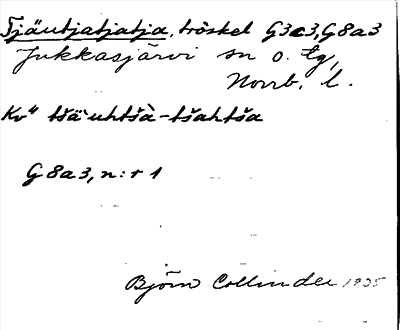 Tjäutjatjatja, tröskel G3c3, G8a3
Jukkasjärvi sn o. tg,
Norrb. l.
Kv" tšä'uhtšà-tšahtša
G8a3, n:r 1
Björn Collinder 1935